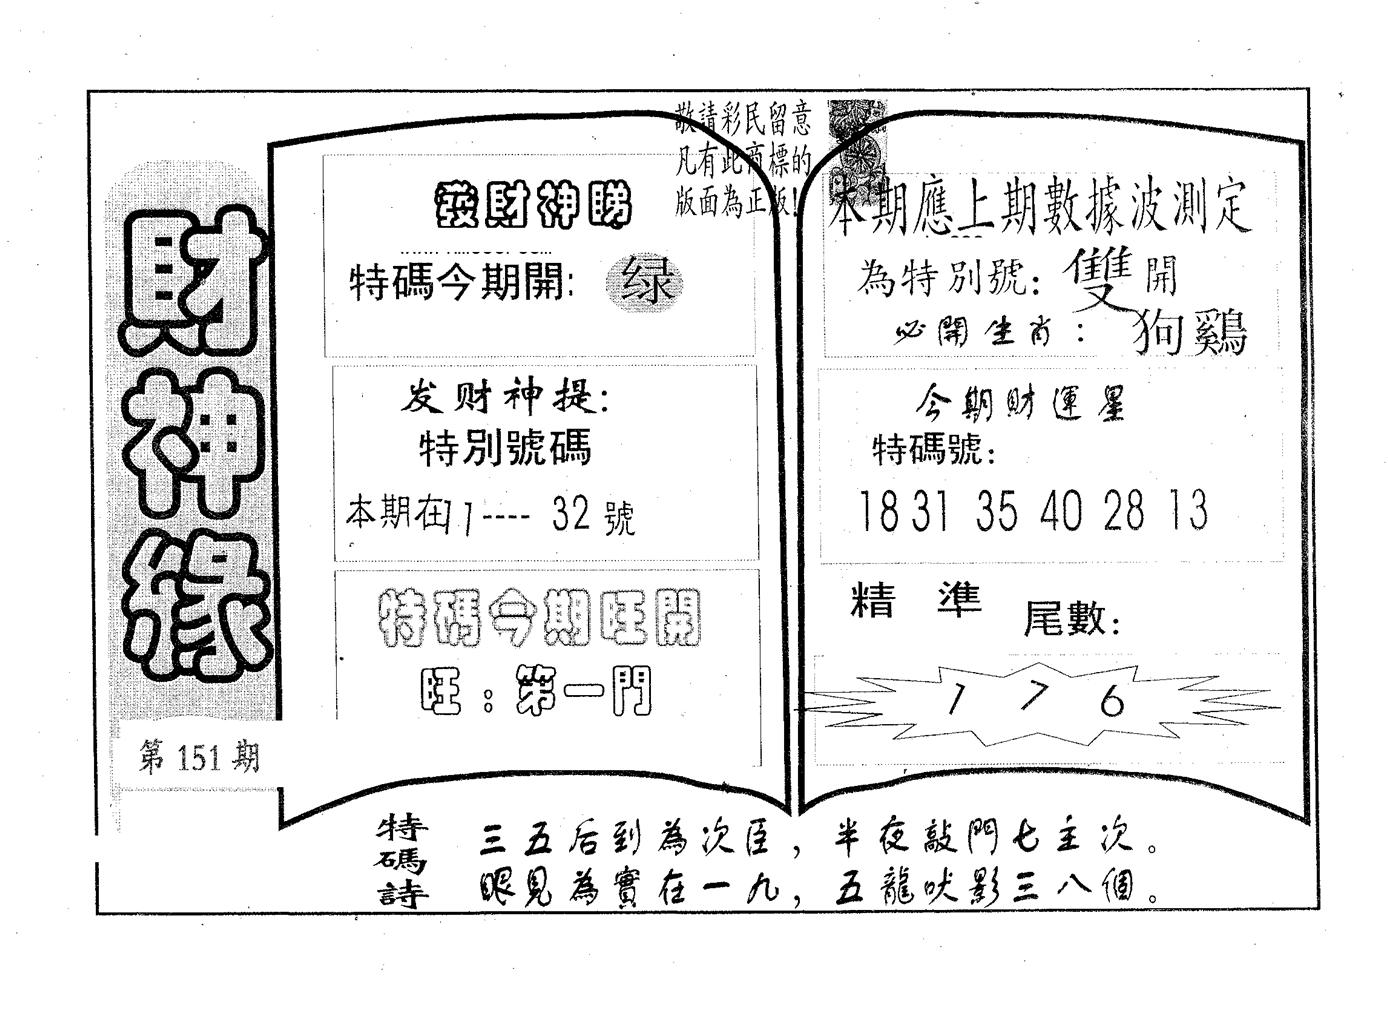 財神緣
第 151 期
敬請彩民留意
凡有此商標的
版面為正版!
發財神睇
特碼今期開: 绿
发财神提:
特別號碼
本期在11---- 32 號
特碼今期旺開
旺:第一門
本期應上期數據波測定
為特別號: 雙 開
必開生肖: 狗鷄
今期財運星
特碼號:
18 31 35 40 28 13
精 準 尾數:
1 7 6
特碼詩
三五后到為次臣,半夜敲門七主次。
眼見為實在一九,五龍吠影三八個。